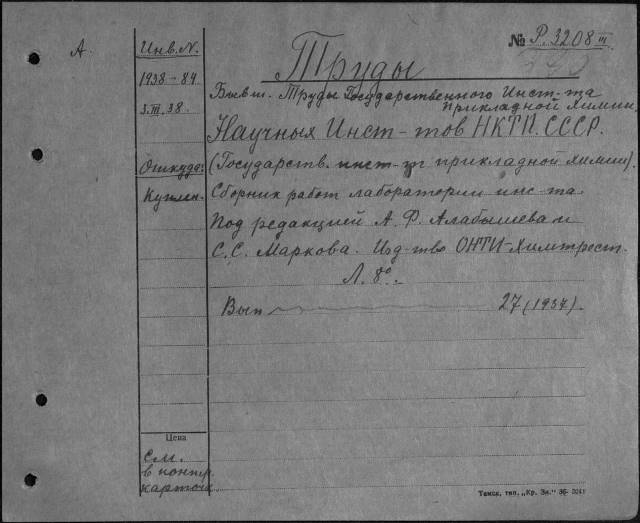 А.
Инв. N.
1938-84
3.III.38.
Откуда:
Куплен.
Цена
см.
в контр.
картот.
№ Р. 3208 III
Труды
Бывш. Труды Государственного Инст-та
Прикладной Химии.
Научных Инст-тов НКТП. СССР.
(Государств. инст-т прикладной химии).
Сборник работ лаборатории инс-та.
Под редакцией А. Ф. Алабышева и
С.С. Маркова. Изд-тво ОНТИ-Химтрест.
Л. 8°.
Вып 27 (1937).
Томск, тип. „Кр. Зн." 36-